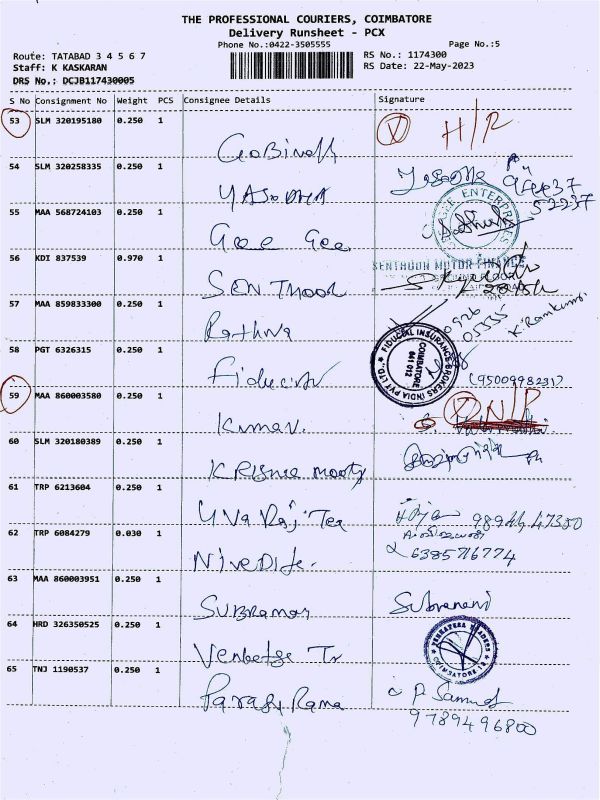 THE PROFESSIONAL COURIERS, COIMBATORE
Delivery Runsheet - PCX
Phone No.:0422-3505555
Page No.:5
Route: TATABAD 3 4 5 6 7
RS No.: 1174300
Staff: K KASKARAN
RS Date: 22-May-2023
DRS No.: DCJB117430005
S No Consignment No Weight PCS Consignee Details Signature
53 SLM 320195180 0.250 1
Gobinath
H/R
54 SLM 320258335 0.250 1
YASODHA
Yasodha
52237
55 MAA 568724103 0.250 1
Gee Gee
GEE GEE ENTERPRISES
56 KDI 837539 0.970 1
SENTHOOR MOTOR FINANCE
SENThoor
57 MAA 859833300 0.250 1
Rathna
K. Ramkumar
58 PGT 6326315 0.250 1
Fiducial
FIDUCIAL INSURANCE BROKERS INDIA PVT LTD.
COIMBATORE
641 012
(9500998231)
59 MAA 860003580 0.250 1
Kumar.
N/P
60 SLM 320180389 0.250 1
KRISHNA mooty
61 TRP 6213604 0.250 1
Yuva Raj Tea
98944 47350
62 TRP 6084279 0.030 1
NiveDita.
6385716774
63 MAA 860003951 0.250 1
SUBRamani
Subramani
64 HRD 326350525 0.250 1
Venkatesa Tr
VENKATESA TRADERS
COIMBATORE-12
65 TNJ 1190537 0.250 1
Parasu Rama
P. Samuel
9789496800